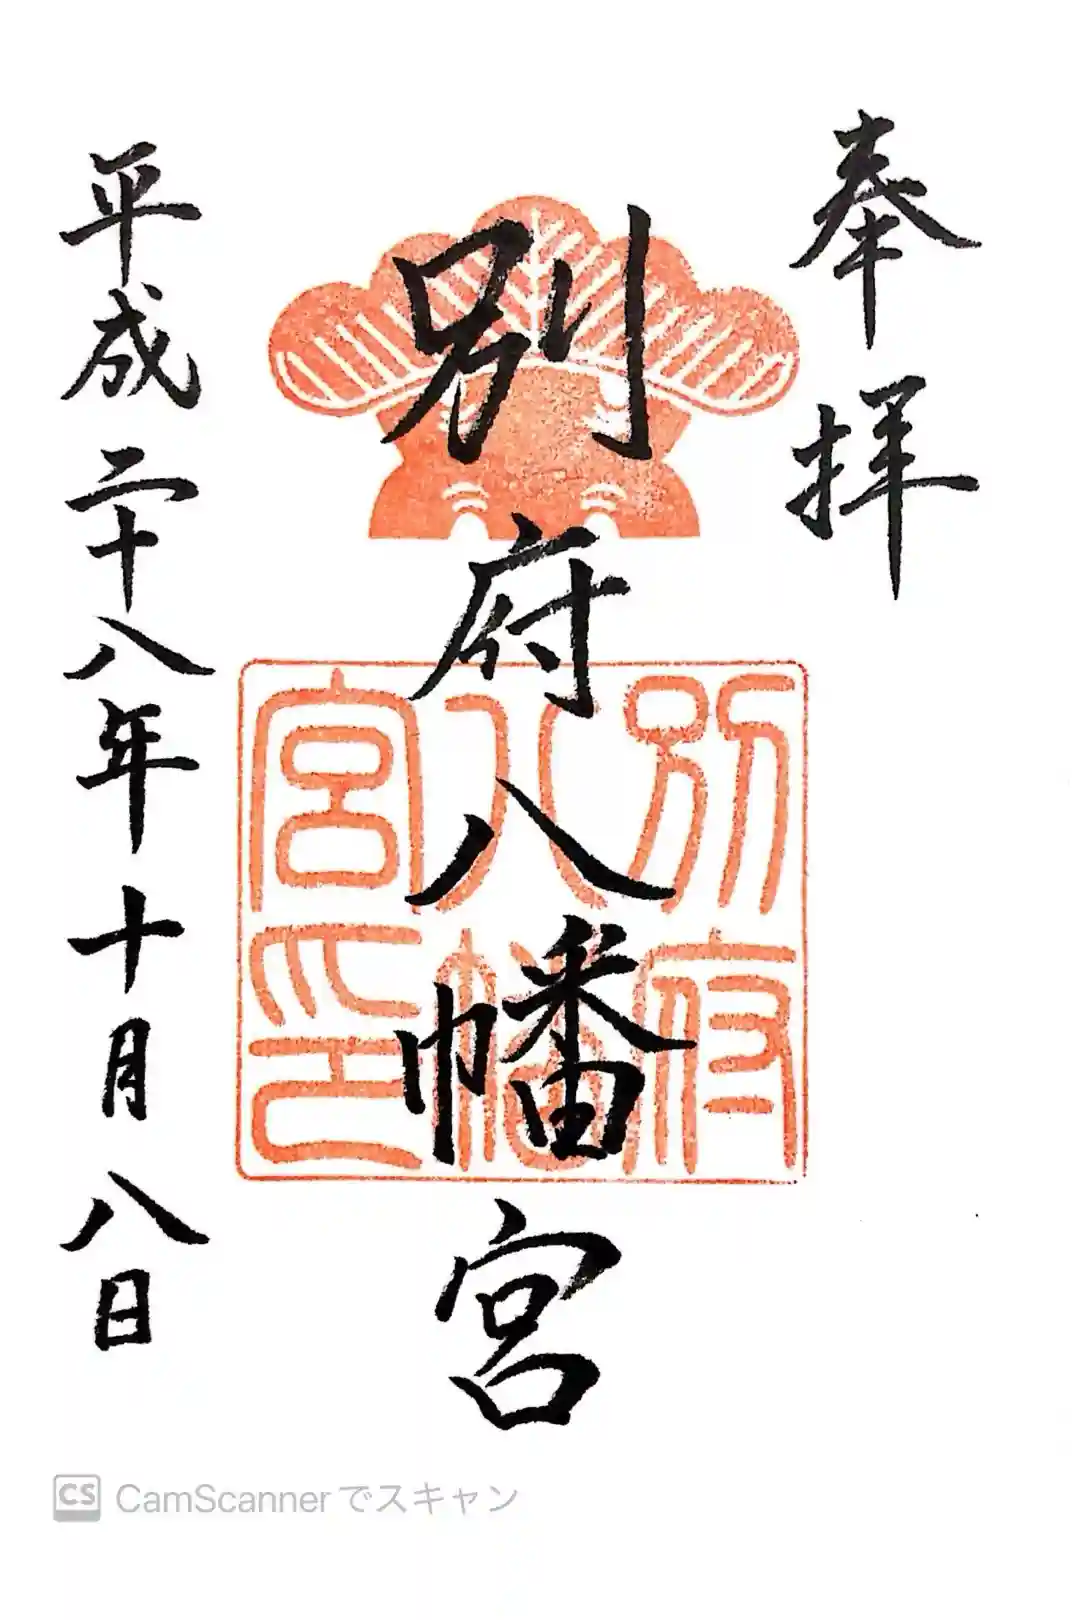 奉拝
別府八幡宮
別府
八幡
宮印
平成二十八年十月八日
CS CamScannerでスキャン